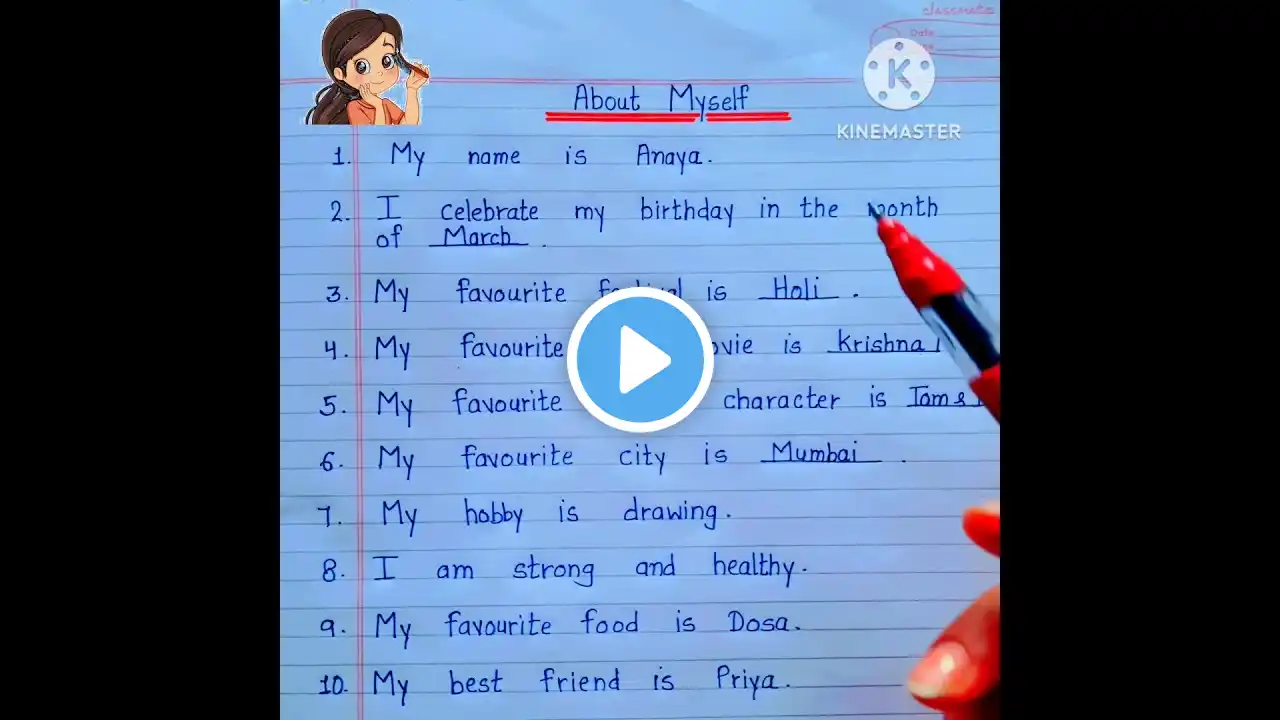 classmate
Date
About Myself
KINEMASTER
1. My name is Anaya.
2. I celebrate my birthday in the month
of March .
3. My favourite is Holi .
4. My favourite is Krishna
5. My favourite character is Tom &
6. My favourite city is Mumbai .
7. My hobby is drawing.
8. I am strong and healthy.
9. My favourite food is Dosa.
10. My best friend is Priya.